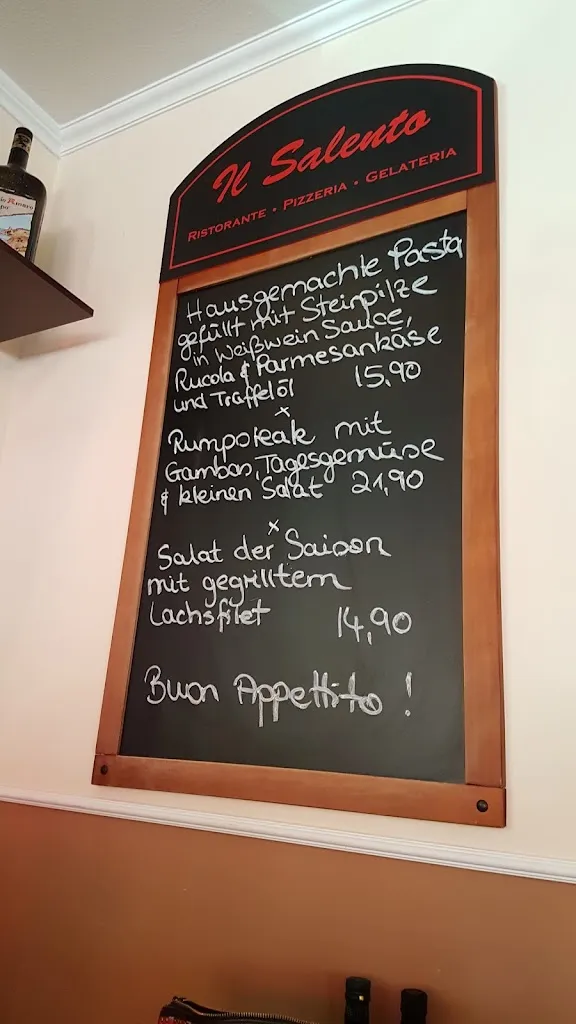 Il Salento
Ristorante • Pizzeria • Gelateria
Hausgemachte Pasta
gefüllt mit Steinpilze
in Weißwein Sauce,
Rucola & Parmesankäse
und Trüffelöl 15,90
x
Rumpsteak mit
Gambas, Tagesgemüse
& kleinen Salat 21,90
x
Salat der Saison
mit gegrilltem
Lachsfilet 14,90
Buon Appettito!